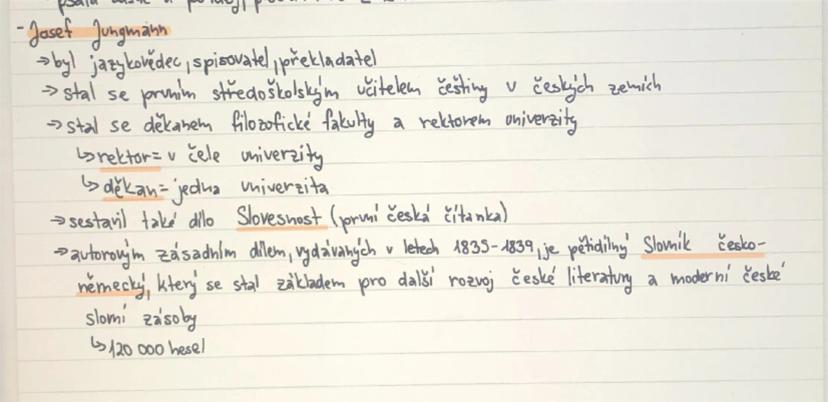 - Josef Jungmann
→ byl jazykovědec, spisovatel, překladatel
→ stal se prvním středoškolským učitelem češtiny v českých zemích
→ stal se děkanem filozofické fakulty a rektorem univerzity
↳ rektor = v čele univerzity
↳ děkan = jedna univerzita
→ sestavil také dílo Slovesnost (první česká čítanka)
→ autorovým zásadním dílem, vydávaných v letech 1835-1839, je pětidílný Slovník česko-
německý, který se stal základem pro další rozvoj české literatury a moderní české
slovní zásoby
↳ 120 000 hesel